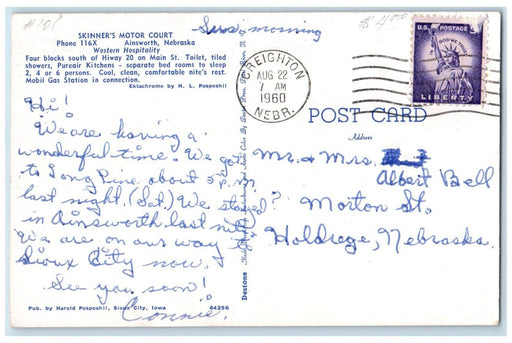 #101
Sun. morning
$4.00
SKINNER'S MOTOR COURT
Phone 116X Ainsworth, Nebraska
Western Hospitality
Four blocks south of Hiway 20 on Main St. Toilet, tiled
showers, Purcair Kitchens - separate bed rooms to sleep
2, 4 or 6 persons. Cool, clean, comfortable nite's rest.
Mobil Gas Station in connection.
Ektachrome by H. L. Pospeshil
CREIGHTON
AUG 22
7 AM
1960
NEBR.
U.S. POSTAGE 3¢
IN GOD WE TRUST
LIBERTY
POST CARD
Address
Hi!
We are having a
wonderful time. We got
to Long Pine about 5 P.M.
last night. (Sat.) We stayed
in Ainsworth last nite.
We are on our way to
Sioux City now.
See you soon!
Connie.
Mr. & Mrs.
Albert Bell
? Morton St.
Holdrege, Nebraska.
Dextone
Pub. by Harold Pospeshil, Sioux City, Iowa 64256